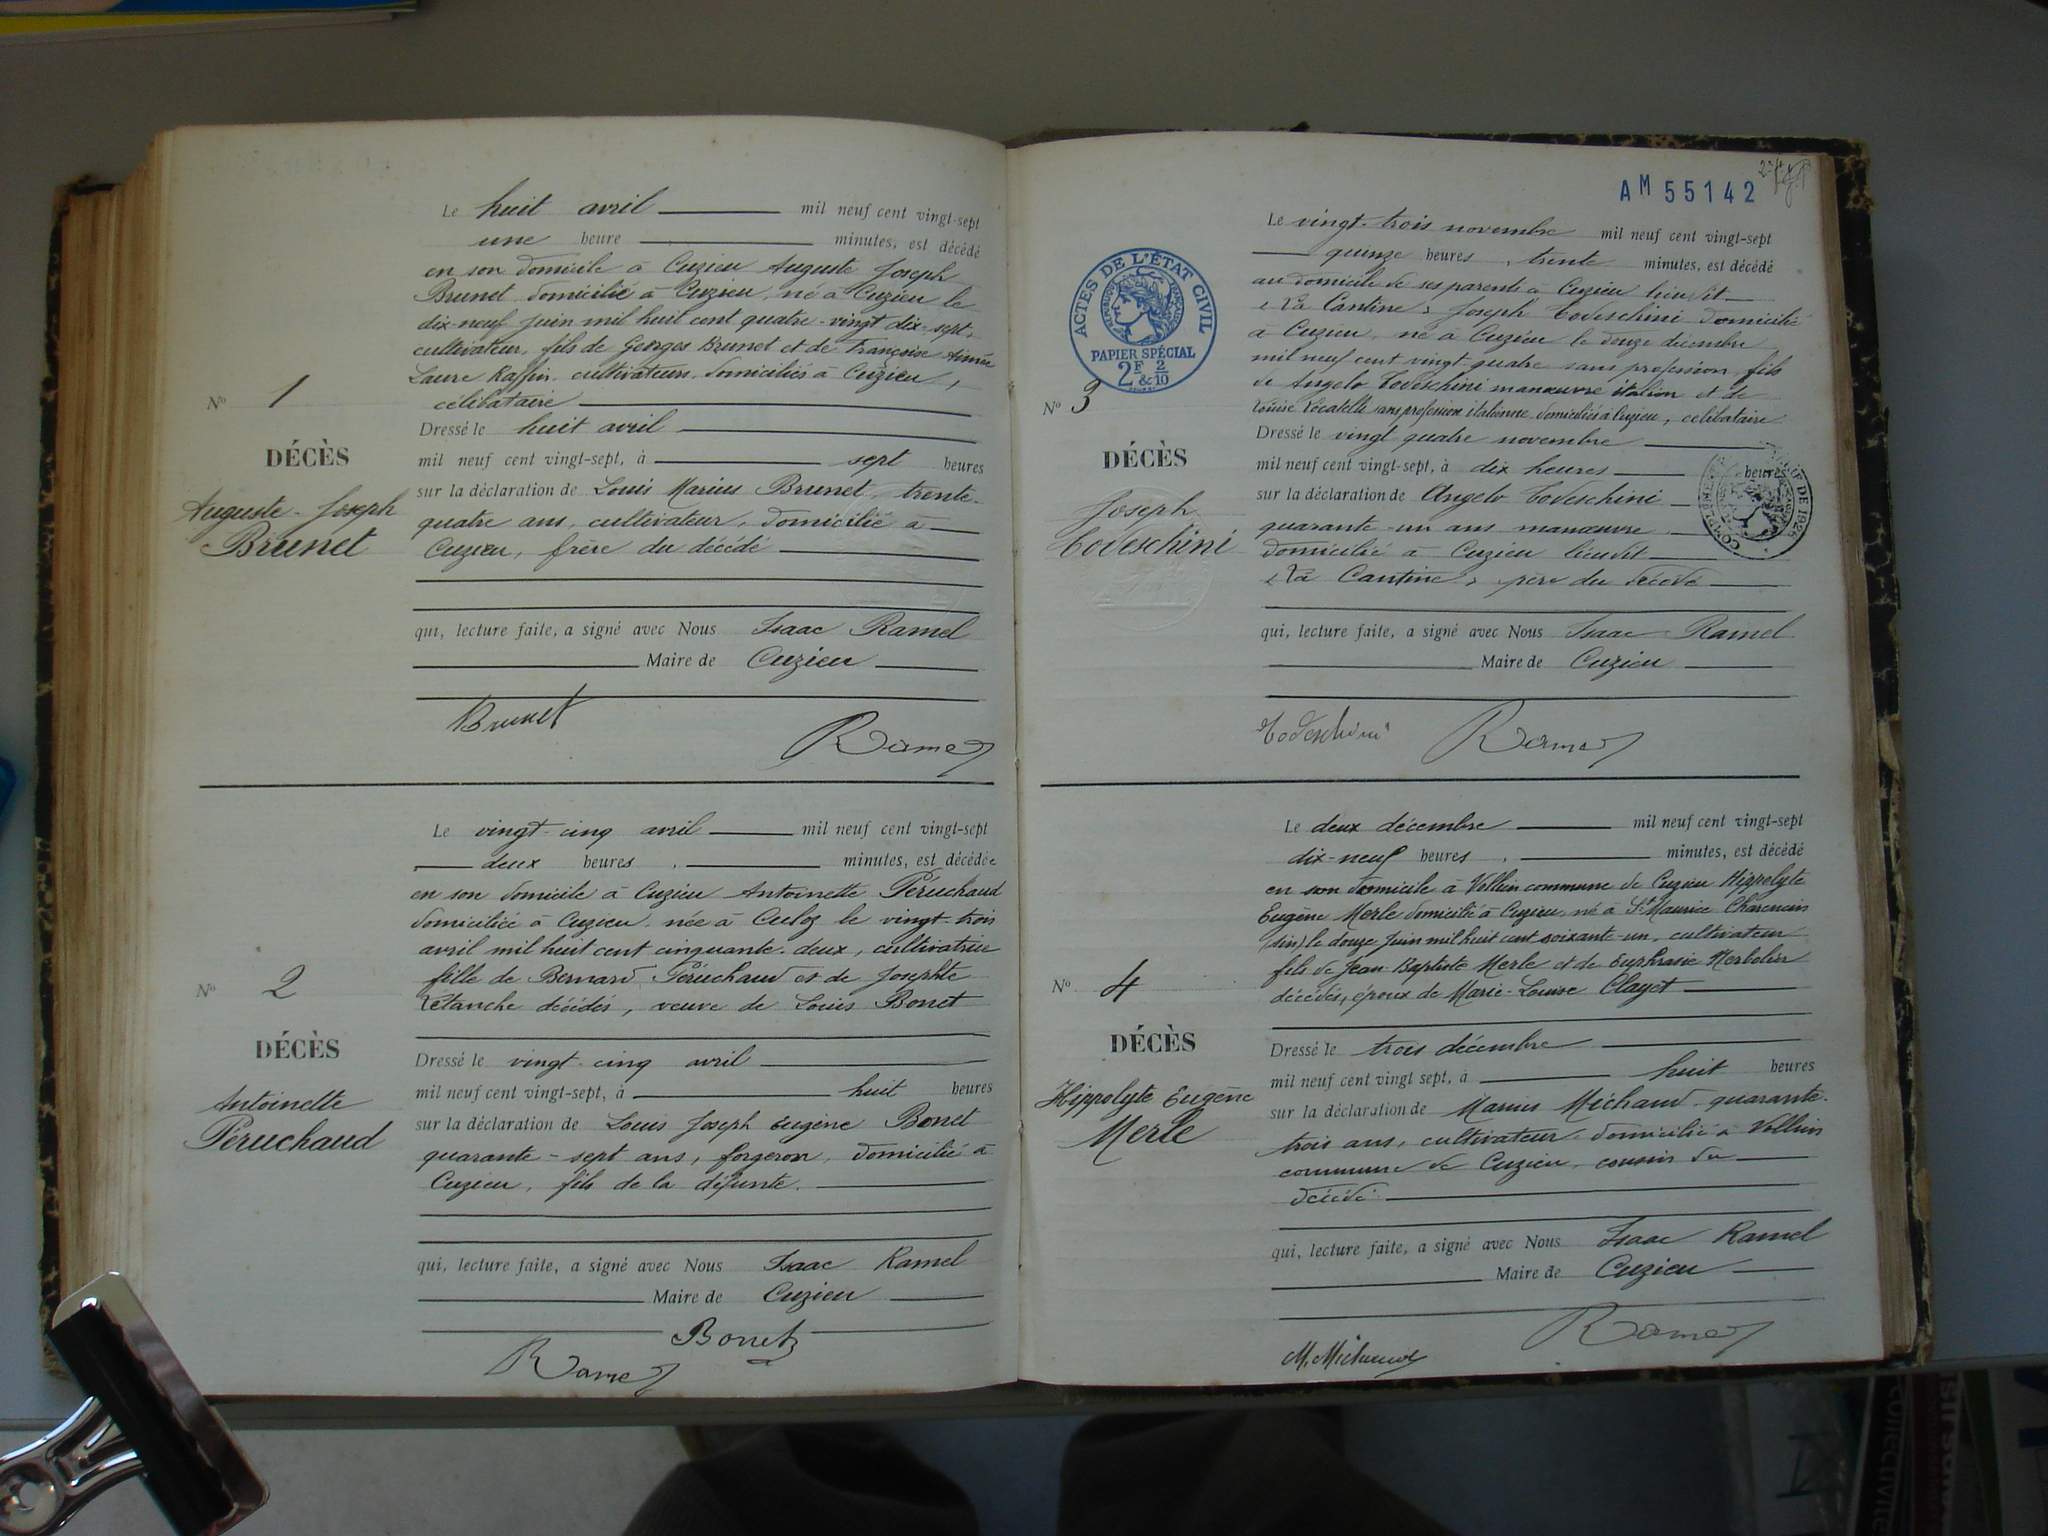 Le huit avril mil neuf cent vingt-sept
une heure minutes, est décédé
en son domicile à Cuzieu Auguste Joseph
Brunet domicilié à Cuzieu, né à Cuzieu le
dix-neuf juin mil huit cent quatre-vingt dix-sept,
cultivateur, fils de Georges Brunet et de Françoise Aimée
Laure Raffin cultivateurs domiciliés à Cuzieu,
célibataire
Dressé le huit avril
mil neuf cent vingt-sept, à sept heures
sur la déclaration de Louis Marius Brunet, trente-
quatre ans, cultivateur, domicilié à
Cuzieu, frère du décédé
qui, lecture faite, a signé avec Nous Isaac Ramel
Maire de Cuzieu
Nº 1
DÉCÈS
Auguste-Joseph
Brunet
Brunet
Ramel
Le vingt-cinq avril mil neuf cent vingt-sept
deux heures, minutes, est décédée
en son domicile à Cuzieu Antoinette Péruchaud
domiciliée à Cuzieu, née à Culoz le vingt-trois
avril mil huit cent cinquante-deux, cultivatrice
fille de Bernard Péruchaud et de Josephte
Létanche décédés, veuve de Louis Bonet
Dressé le vingt-cinq avril
mil neuf cent vingt-sept, à huit heures
sur la déclaration de Louis Joseph Eugène Bonet
quarante-sept ans, forgeron, domicilié à
Cuzieu, fils de la défunte.
qui, lecture faite, a signé avec Nous Isaac Ramel
Maire de Cuzieu
Nº 2
DÉCÈS
Antoinette
Péruchaud
Bonet
Ramel
AM 55142
ACTES DE L'ÉTAT CIVIL
PAPIER SPÉCIAL
2F & 2/10
Le vingt-trois novembre mil neuf cent vingt-sept
quinze heures, trente minutes, est décédé
au domicile de ses parents à Cuzieu lieu dit
« La Cantine » Joseph Todeschini domicilié
à Cuzieu, né à Cuzieu le douze décembre
mil neuf cent vingt quatre sans profession, fils
de Angelo Todeschini manœuvre italien et de
Louise Locatelli sans profession italienne domiciliés à Cuzieu, célibataire
Dressé le vingt quatre novembre
mil neuf cent vingt-sept, à dix heures heures
sur la déclaration de Angelo Todeschini
quarante-un ans manœuvre
domicilié à Cuzieu lieudit
« La Cantine » père du décédé
qui, lecture faite, a signé avec Nous Isaac Ramel
Maire de Cuzieu
Nº 3
DÉCÈS
Joseph
Todeschini
Todeschini
Ramel
Le deux décembre mil neuf cent vingt-sept
dix-neuf heures, minutes, est décédé
en son domicile à Vollien commune de Cuzieu Hippolyte
Eugène Merle domicilié à Cuzieu, né à St Maurice Charencin
(Ain) le douze juin mil huit cent soixante-un, cultivateur
fils de Jean-Baptiste Merle et de Euphrasie
décédés, époux de Marie-Louise Clayet
Dressé le trois décembre
mil neuf cent vingt sept, à huit heures
sur la déclaration de Marius Michaud quarante-
trois ans, cultivateur domicilié à Vollien
commune de Cuzieu, cousin du
décédé
qui, lecture faite, a signé avec Nous Isaac Ramel
Maire de Cuzieu
Nº 4
DÉCÈS
Hippolyte Eugène
Merle
M. Michaud
Ramel